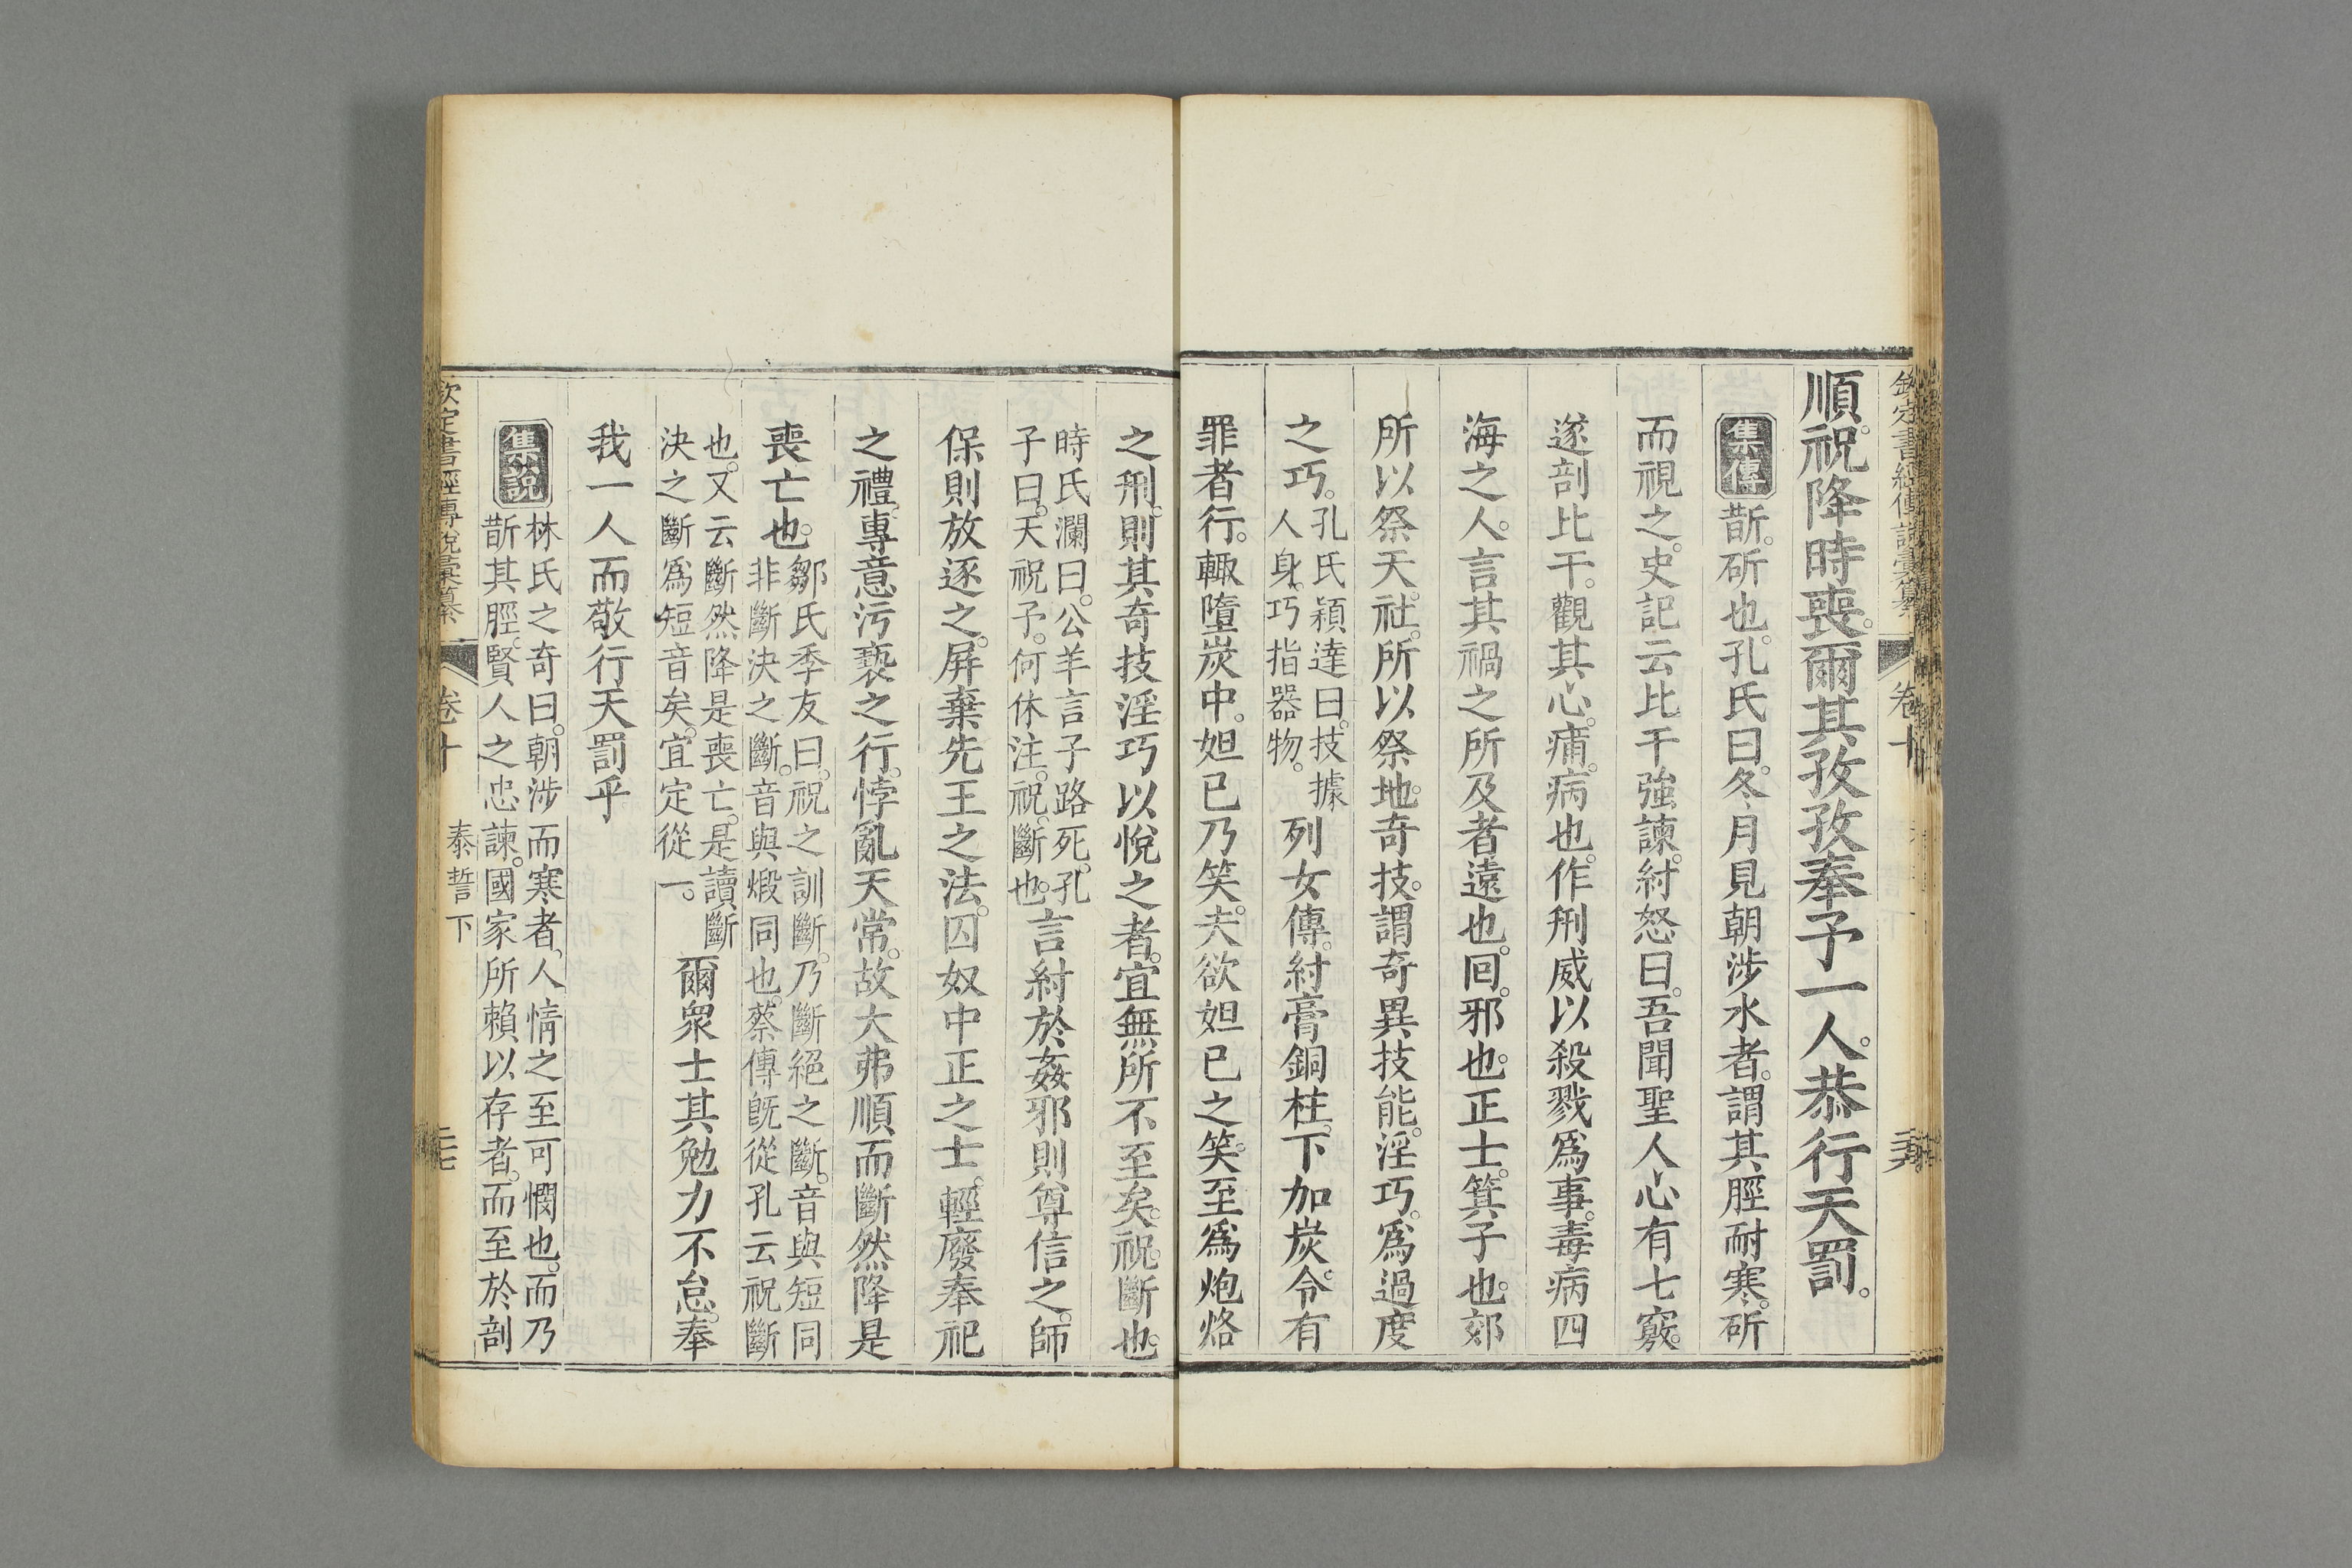 順。祝降時喪。爾其孜孜奉予一人。恭行天罰。
集傳 斮。斫也。孔氏曰。冬月見朝涉水者。謂其脛耐寒。斫
而視之。史記云比干強諫。紂怒曰。吾聞聖人心有七竅。
遂剖比干。觀其心。痡。病也。作刑威以殺戮爲事。毒病四
海之人。言其禍之所及者遠也。回。邪也。正士。箕子也。郊
所以祭天。社。所以祭地。奇技。謂奇異技能。淫巧。爲過度
之巧。孔氏穎達曰。技據
人身。巧指器物。
列女傳。紂膏銅柱。下加炭。令有
罪者行。輒墮炭中。妲己乃笑。夫欲妲己之笑。至爲炮烙
之刑。則其奇技淫巧以悅之者。宜無所不至矣。祝。斷也。
時氏瀾曰。公羊言子路死。孔
子曰。天祝予。何休注。祝。斷也。
言紂於姦邪則尊信之。師
保則放逐之。屏棄先王之法。囚奴中正之士。輕廢奉祀
之禮。專意污褻之行。悖亂天常。故大弗順而斷然降是
喪亡也。
鄒氏季友曰。祝之訓斷。乃斷絕之斷。音與短同
非斷決之斷。音與煅同也。蔡傳旣從孔云祝斷
也。又云斷然降是喪亡。是讀斷
決之斷爲短音矣。宜定從一。
爾衆士其勉力不怠。奉
我一人而敬行天罰乎
集說
林氏之奇曰。朝涉而寒者。人情之至可憫也。而乃
斮其脛。賢人之忠諫。國家所賴以存者。而至於剖
欽定書經傳說彙纂
卷十
泰誓下